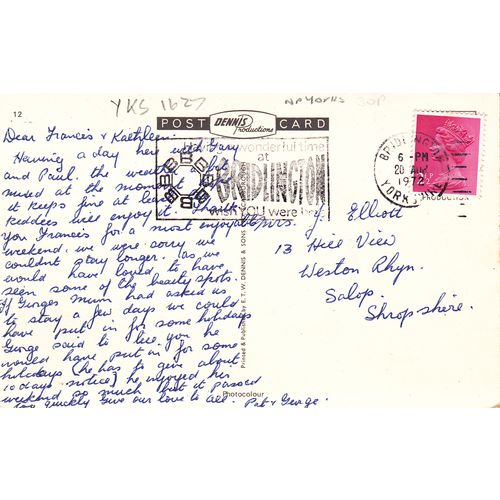 YKS 1627
NP Yorks 30P
12
POST DENNIS Productions CARD
Dear Francis & Kathleen.
Having a day here with Gary
and Paul. the weather's a bit
mixed at the moment but if
it keeps fine at least the
kiddies will enjoy it. Thank
you Francis for a most enjoyable
weekend. we were sorry we
couldn't stay longer. as we
would have loved to have
seen some of the beauty spots.
If Georges Mum had asked us
to stay a few days we could
have put in for some holidays
George said to tell you he
would have put in for some
holidays (he has to give about
10 days notice) he enjoyed his
weekend so much but it passed
too quickly Give our love to all. Pat & George.
Having a wonderful time
at
BRIDLINGTON
wish YOU were here
BRIDLINGTON
6 - PM
20 AUG
1972
YORKSHIRE
Elliott
13 Hill View
Weston Rhyn.
Salop.
Shropshire.
Printed & Published by E. T. W. DENNIS & SONS
Photocolour